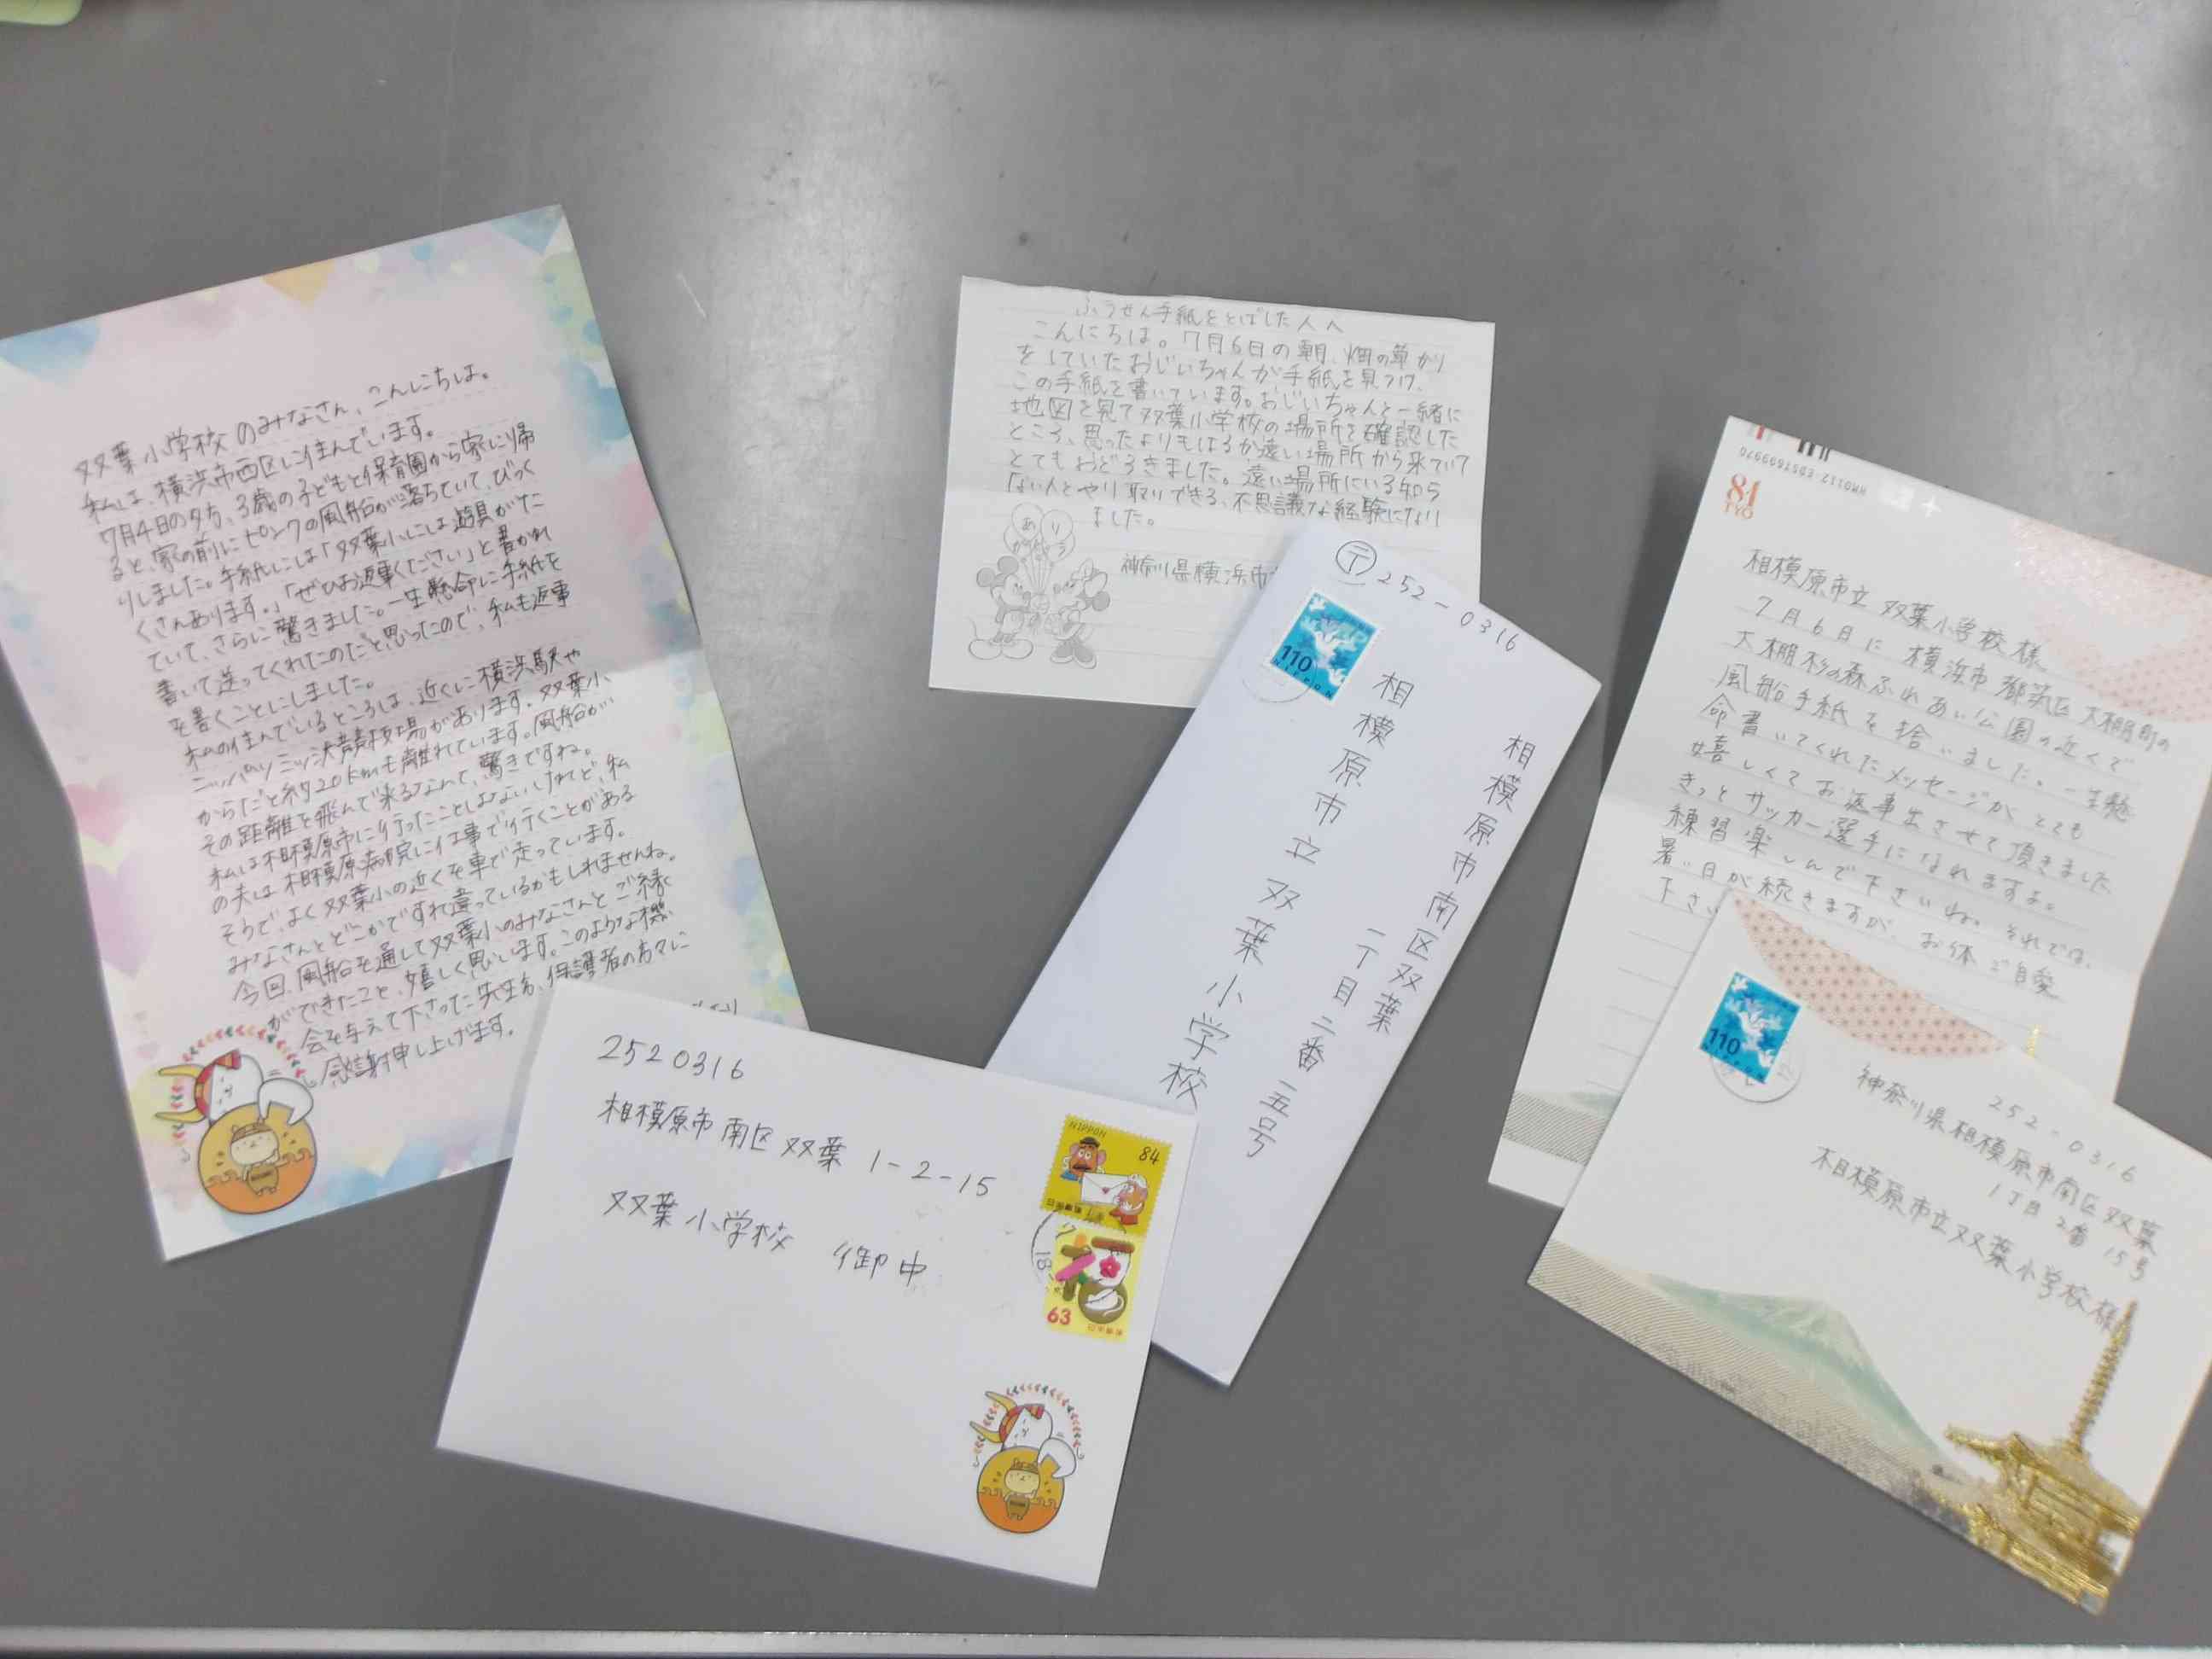 双葉小学校のみなさん、こんにちは。
私は、横浜市西区に住んでいます。
7月4日の夕方、3歳の子どもと保育園から家に帰
ると、家の前にピンクの風船が落ちていて、びっく
りしました。手紙には「双葉小には遊具がた
くさんあります。」「ぜひお返事ください」と書かれ
ていて、さらに驚きました。一生懸命に手紙を
書いて送ってくれたのだと思ったので、私も返事
を書くことにしました。
私の住んでいるところは、近くに横浜駅や
ニッパツ三ッ沢競技場があります。双葉小
からだと約20kmも離れています。風船が
その距離を飛んで来るなんて、驚きですね。
私は相模原市に行ったことはないけれど、私
の夫は相模原病院に仕事で行くことがある
そうで、よく双葉小の近くを車で走っています。
みなさんとどこかですれ違っているかもしれませんね。
今回、風船を通して双葉小のみなさんとご縁
ができたこと、嬉しく思います。このような機
会を与えて下さった先生方、保護者の方々に
感謝申し上げます。
ふうせん手紙をとばした人へ
こんにちは。7月6日の朝、畑の草かり
をしていたおじいちゃんが手紙を見つけ、
この手紙を書いています。おじいちゃんと一緒に
地図を見て双葉小学校の場所を確認した
ところ、思ったよりもはるか遠い場所から来ていて
とてもおどろきました。遠い場所にいる知ら
ない人とやり取りできる、不思議な経験になり
ました。
ありがとう
神奈川県横浜市
〒252-0316
110
NIPPON
相模原市南区双葉
一丁目二番一五号
相模原市立双葉小学校
2520316
相模原市南区双葉 1-2-15
双葉小学校 御中
NIPPON
84
日本郵便
福
63
日本郵便
18
HM0112 EDST699970
81
TYO
相模原市立 双葉小学校様
7月6日に 横浜市都筑区大棚町の
大棚杉の森ふれあい公園の近くで
風船手紙を拾いました。一生懸
命書いてくれたメッセージが とても
嬉しくてお返事出させて頂きました
きっとサッカー選手になれますよ。
練習楽しんで下さいね。それでは、
暑い日が続きますが、お体ご自愛
下さい
110
NIPPON
252-0316
神奈川県相模原市南区双葉
1丁目2番15号
相模原市立双葉小学校様